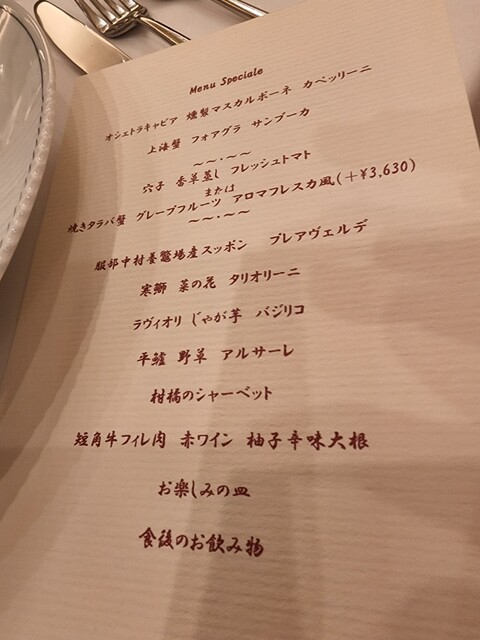 Menu Speciale
オシェトラキャビア 燻製マスカルポーネ カペッリーニ
上海蟹 フォアグラ サンブーカ
～～・～～
穴子 香草蒸し フレッシュトマト
または
焼きタラバ蟹 グレープフルーツ アロマフレスカ風(＋¥3,630)
～～・～～
服部中村養鼈場産スッポン プレアヴェルデ
寒鰤 菜の花 タリオリーニ
ラヴィオリ じゃが芋 バジリコ
平鱸 野草 アルサーレ
柑橘のシャーベット
短角牛フィレ肉 赤ワイン 柚子辛味大根
お楽しみの皿
食後のお飲み物